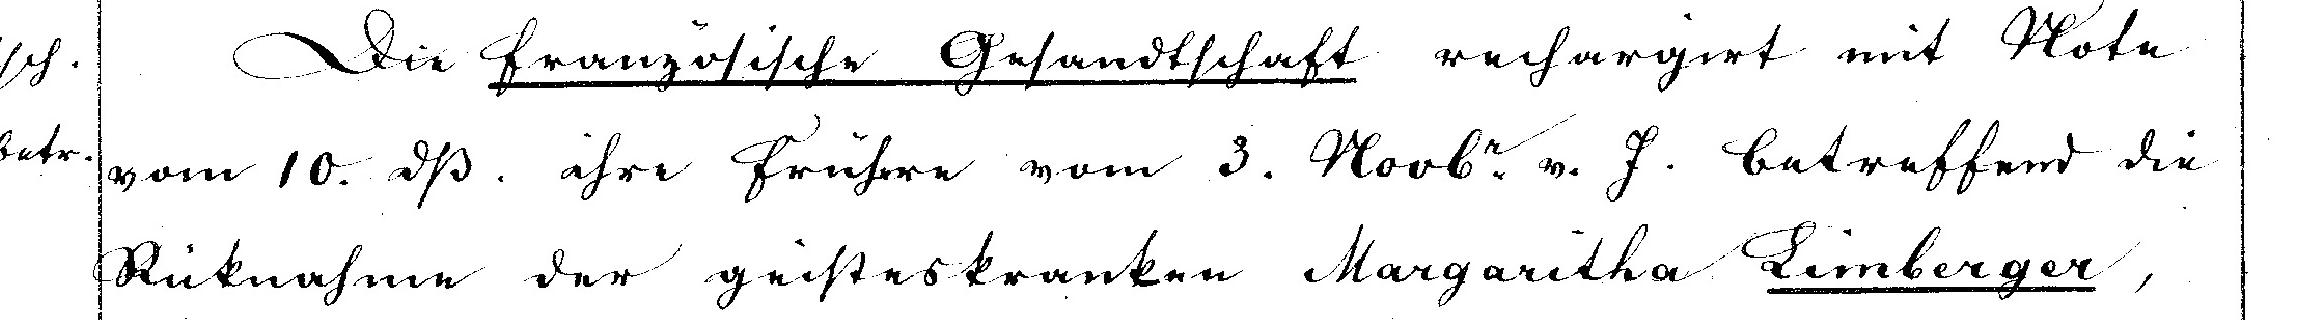 sch. Die französische Gesandtschaft rechargirt mit Note
betr. vom 10. dß. ihre frühere vom 3. Novbr. v. J. betreffend die
Rüknahme der geisteskranken Margaritha Limberger,